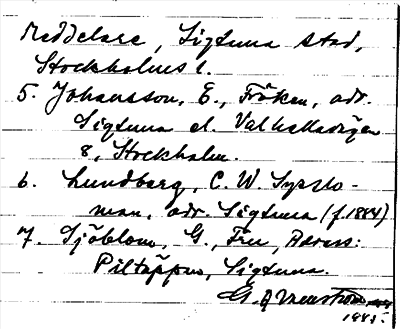 Meddelare, Sigtuna stad,
Stockholms l.
5. Johansson, E., Fröken, adr.
Sigtuna el. Valhallavägen
8, Stockholm.
6. Lundberg, C. W.Ssysslo-
man, adr. Sigtuna (f. 1884)
7. Sjöblom, G., Fru, Adress:
Piltäppan, Sigtuna.
G.